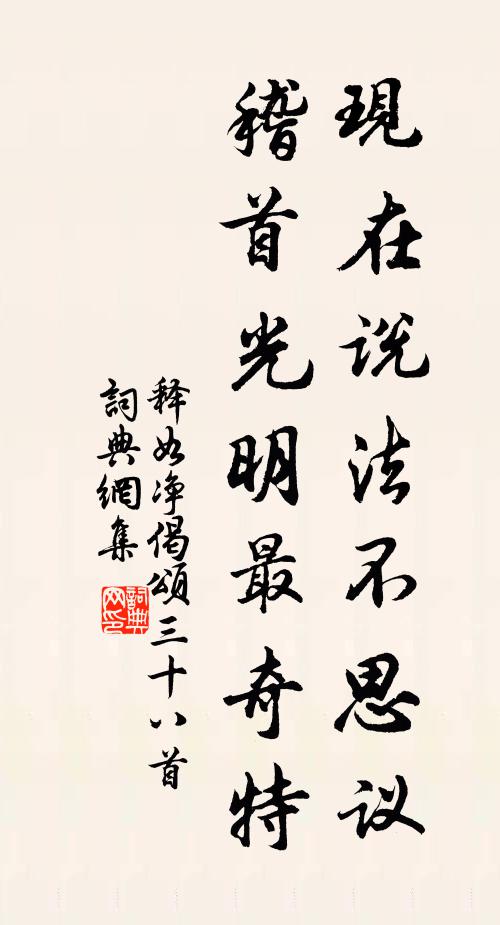 現在説法不思议
稽首光明最奇特
释如净偈頌三十八首
詞典網集
詞典网印